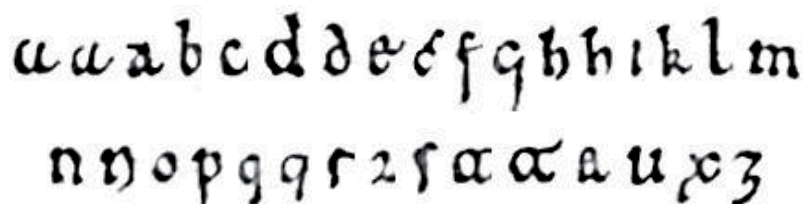 a a a b c d d e e f g h h i k l m
n n o p q q r r s t t a u x z